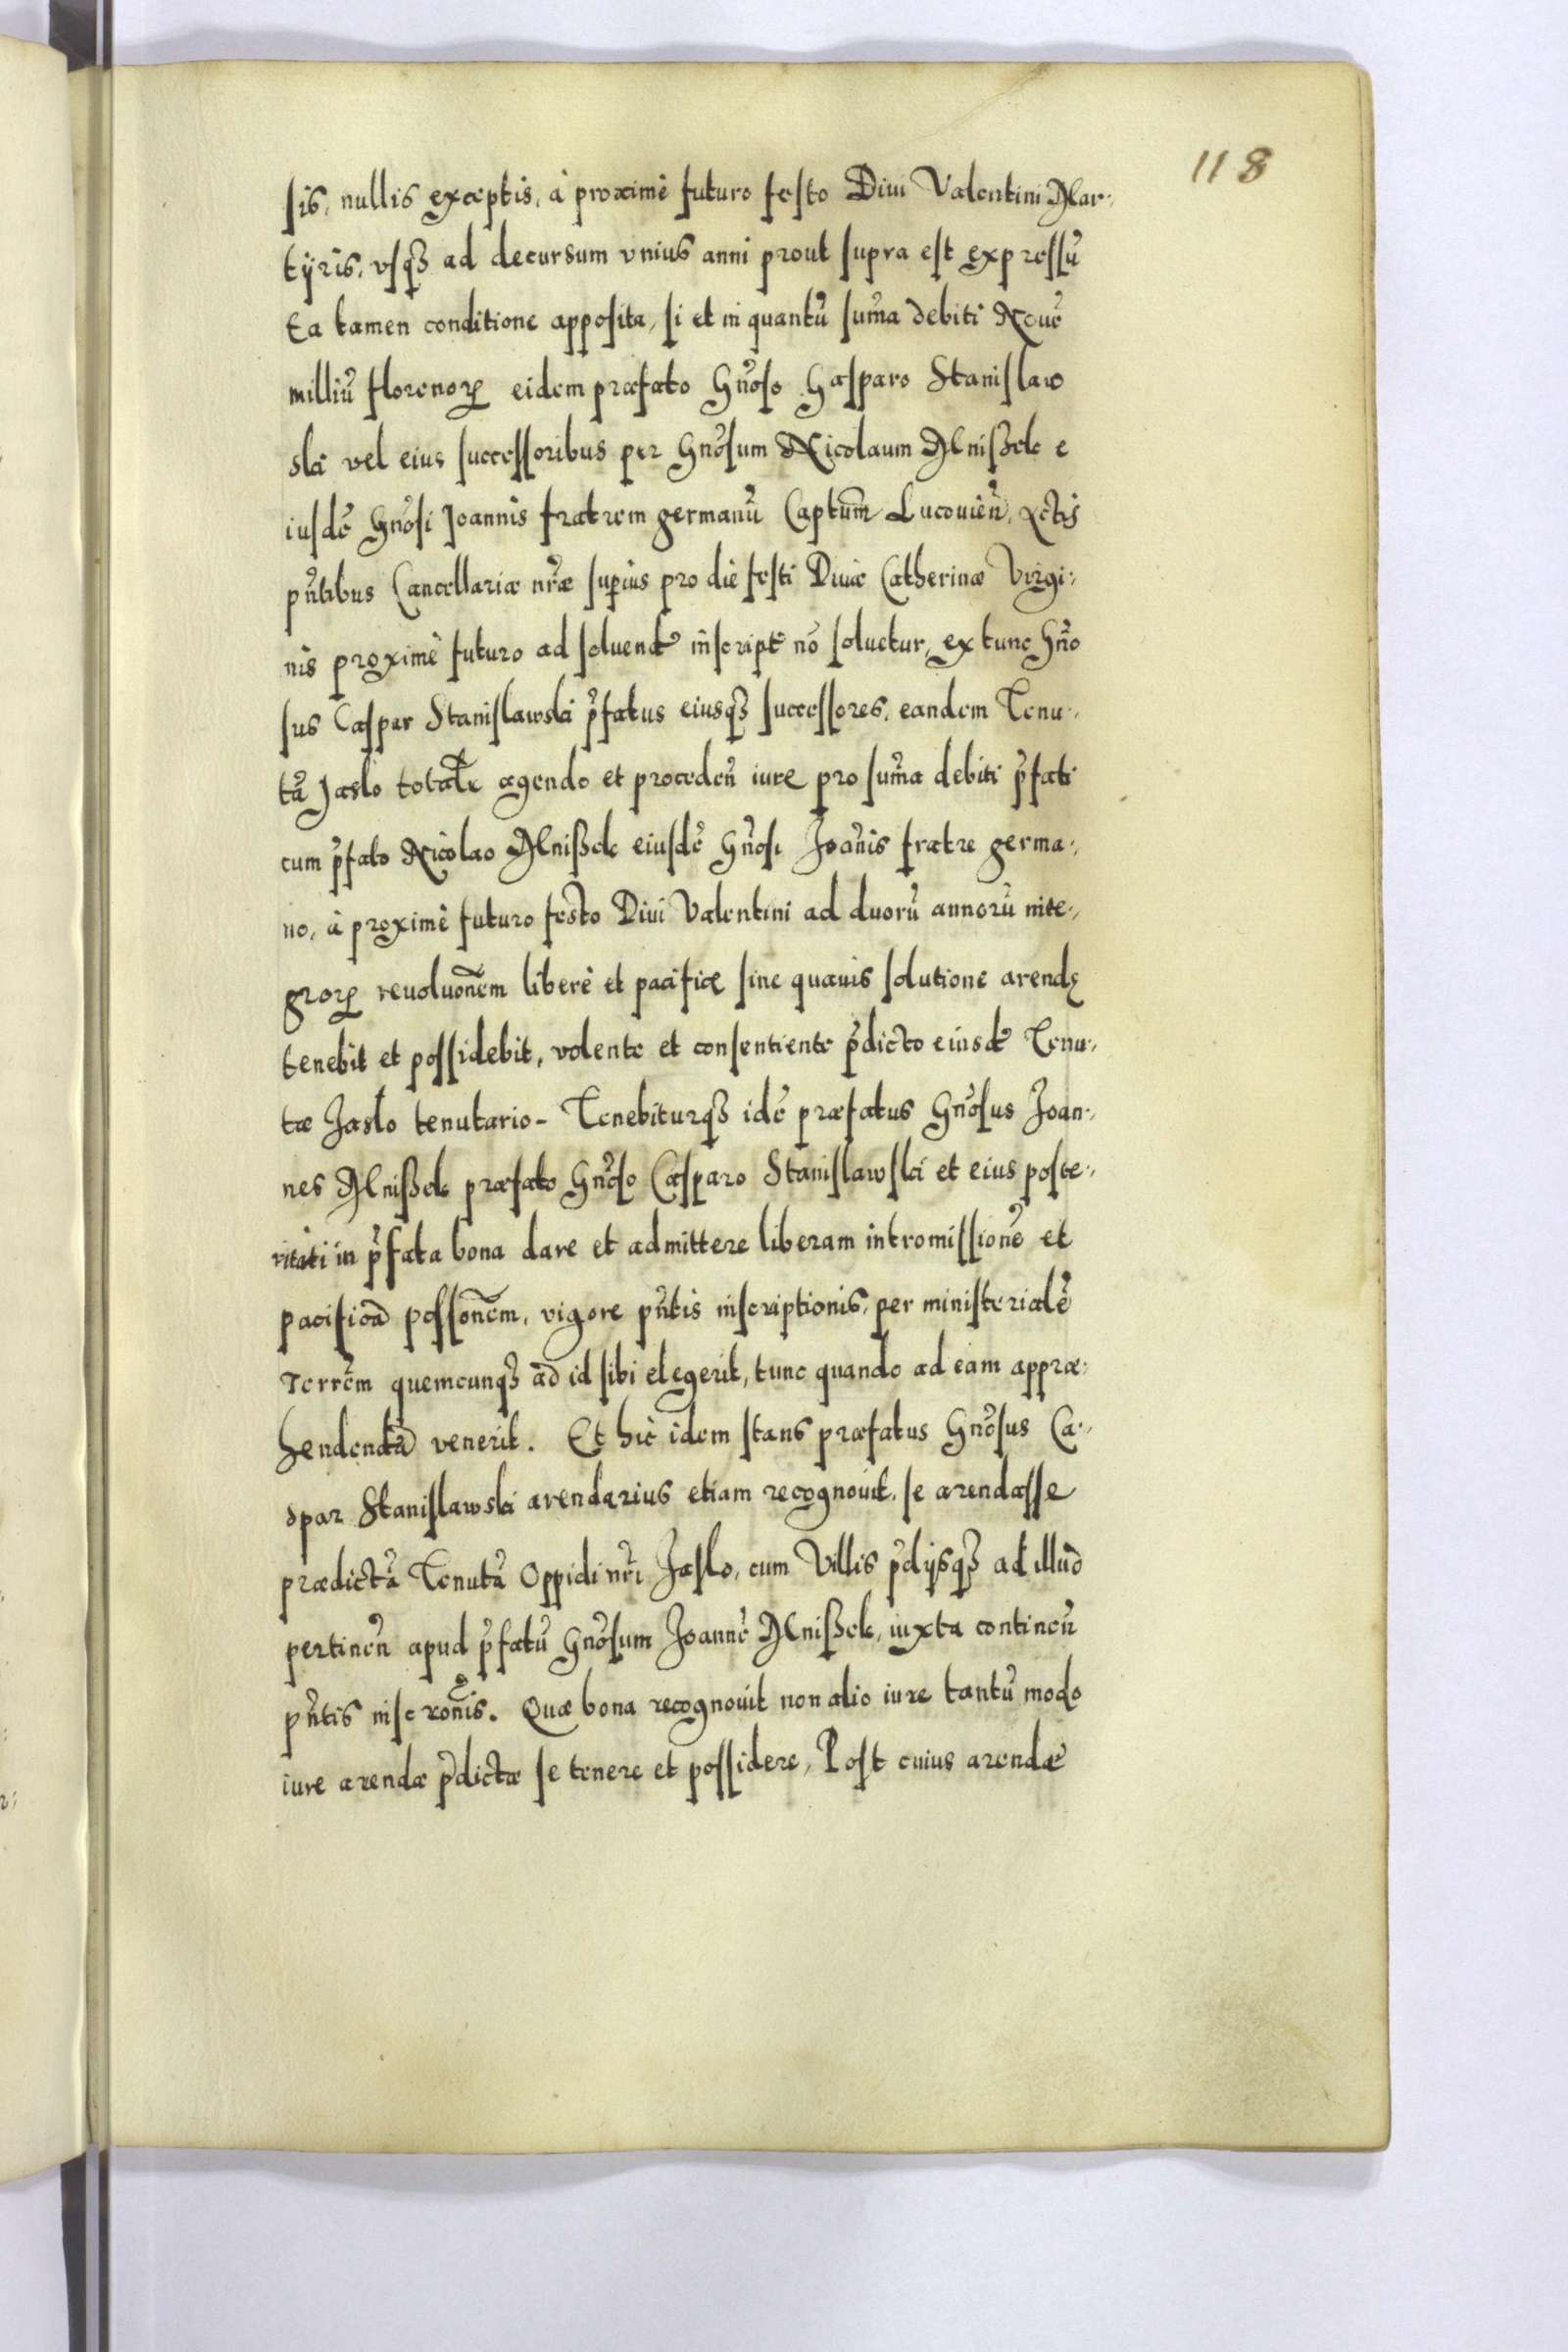 118
sis, nullis exceptis, à proximè futuro festo Diui Valentini Mar:
tÿris, vsq3 ad decursum vnius anni prout supra est expressũ
Ea tamen conditione apposita, si et in quantũ sum̃a debiti Nouẽ
milliũ florenorꝝ eidem præfato Gñoso Gasparo Stanislaw
ski vel eius successoribus per Gnõsum Nicolaum Mnißek e
iusdẽ Gnõsi Joannis fratrem germanũ Captum̃ Lucouieñ, Actis
pñtibus Cancellariæ nr̃æ superius pro die festi Diuæ Catherinæ Virgi:
nis proximè futuro ad soluend̃ inscript̃ nõ soluetur, ex tunc Gño
sus Caspar Stanislawski p̃fatus eiusq3 successores, eandem Tenu:
tã Jaslo totalr̃ agendo et procedeñ iure pro sum̃a debiti p̃fati
cum p̃fato Nicolao Mnißek eiusdẽ Gñosi Joañis fratre germa:
no, à proximè futuro festo Diui Valentini ad duorũ annorũ inte:
grorꝝ reuoluonẽm liberè et pacificæ sine quauis solutione arendę
tenebit et possidebit, volente et consentiente p̃dicto eiusd̃ Tenu:
tæ Jaslo tenutario - Tenebiturq3 idẽ præfatus Gnõsus Joan:
nes Mnißek præfato Gnõso Casparo Stanislawski et eius poste:
ritati in p̃fata bona dare et admittere liberam intromissionẽ et
pacificã possonẽm, vigore pñtis inscriptionis, per ministerialẽ
Terrẽm quemcunq3 ad id sibi elegerit, tunc quando ad eam appræ:
hendendã venerit. Et hic idem stans præfatus Gnõsus Ca:
spar Stanislawski arendarius etiam recognouit, se arendasse
prædictã Tenutã Oppidi nr̃i Jaslo, cum Villis p̃dÿsq3 ad illud
pertineñ apud p̃fatũ Gnõsum Joannẽ Mnißek, iuxta contineñ
pñtis inscronĩs. Quæ bona recognouit non alio iure tantũ modo
iure arendæ p̃dictæ se tenere et possidere, Post cuius arendæ